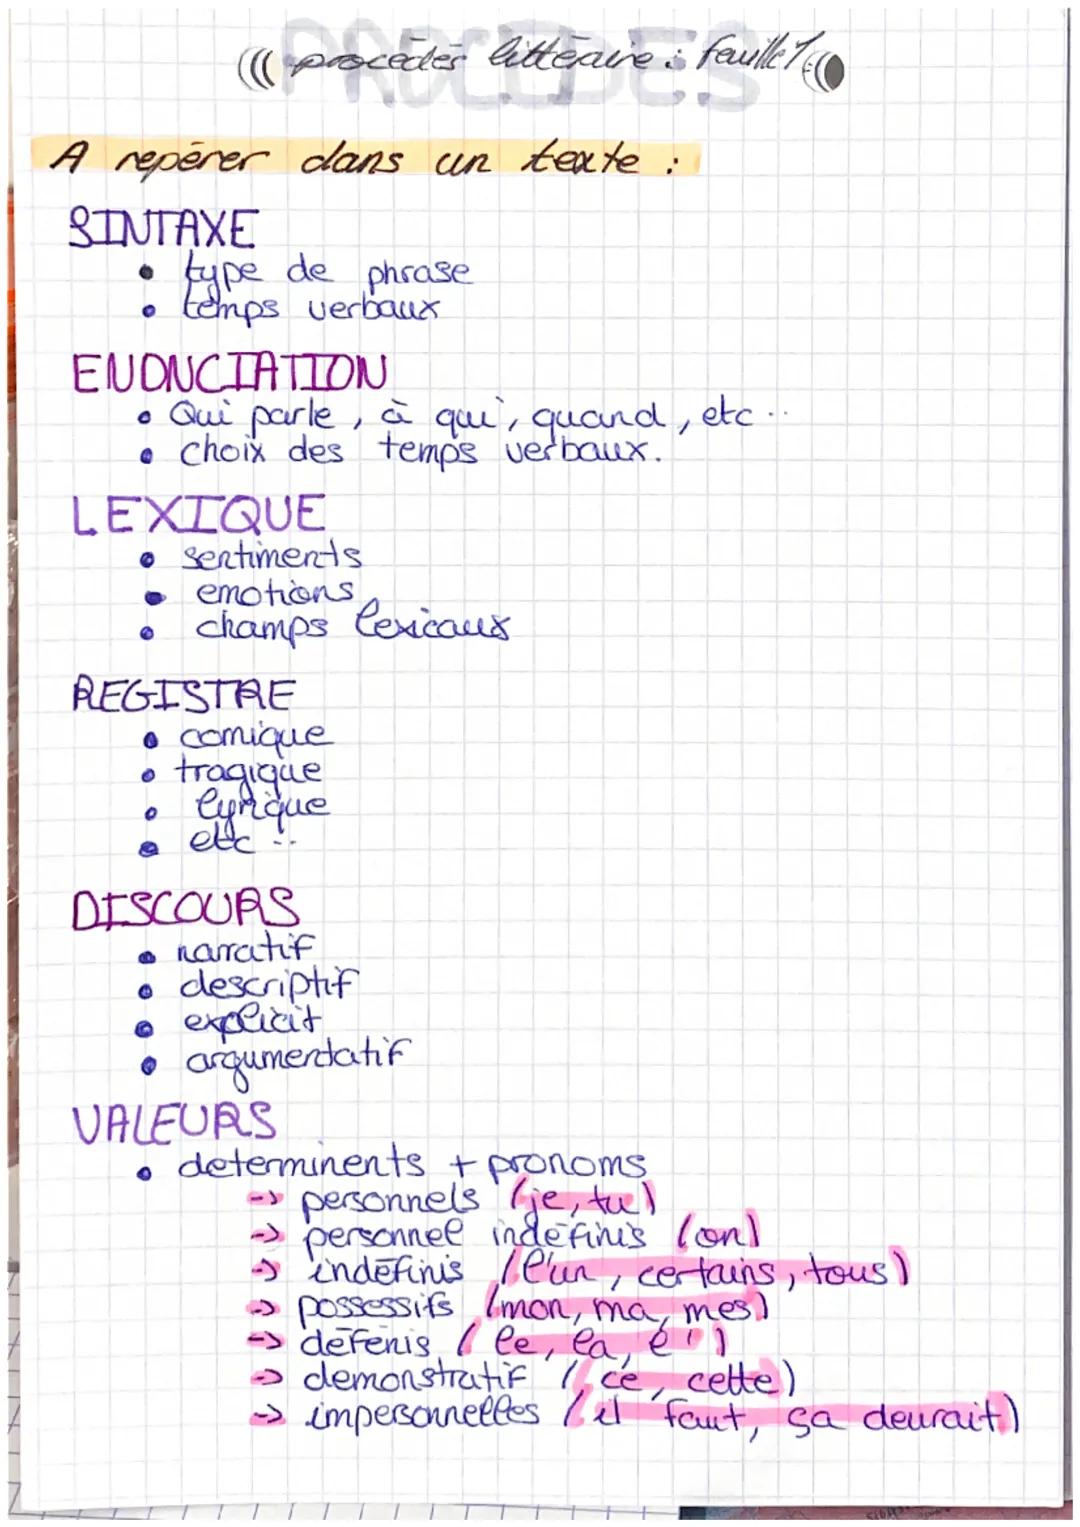 PROCEDES
procédés littéraire : feuille 1
A repérer dans un texte :
SINTAXE
• type de phrase
• temps verbaux
ENONCIATION
• Qui parle, à qui, quand, etc..
• choix des temps verbaux.
LEXIQUE
• sentiments
• emotions
• champs lexicaux
REGISTRE
• comique
• tragique
• lyrique
• etc ..
DISCOURS
• narratif
• descriptif
• explicit
• argumentatif
VALEURS
• determinents + pronoms
-> personnels (je, tu)
-> personnel indéfinis (on)
-> indéfinis (l'un, certains, tous)
-> possessifs (mon, ma, mes)
-> défenis (le, la, l')
-> demonstratif (ce, cette)
-> impersonnelles (il faut, ça devrait)